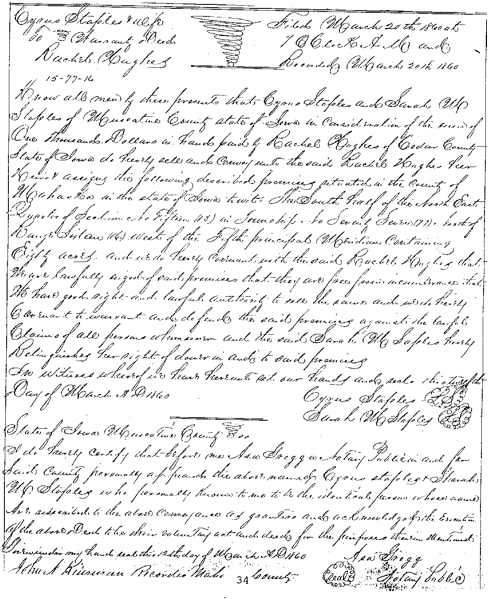 Cyrus Staples & Wife
To Warranty Deed
Rachel Hughes
15-77-16
Filed March 20th 1860 at
7 O Clock A.M and
Recorded March 20th 1860
Know all men by these presents that Cyrus Staples and Sarah M
Staples of Muscatine County state of Iowa in consideration of the sum of
One thousand Dollars in hand paid by Rachel Hughes of Cedar County
State of Iowa do hereby sell and convey unto the said Rachel Hughes her
Heirs & assigns the following described premises situated in the County of
Mahaska in the state of Iowa to wit The South half of the North East
Quarter of Section No Fifteen (15) in Township No Seventy Seven (77) north of
Range Sixteen (16) West of the Fifth principal Meridian Containing
Eighty acres and we do hereby covenant with the said Rachel Hughes that
We are lawfully seized of said premises that they are free from incumbrance that
We have good right and lawful authority to sell the same and we do hereby
Covenant to warrant and defend the said premises against the lawful
Claims of all persons whomsoever and the said Sarah M Staples hereby
Relinquishes her right of dower in and to said premises
In witness whereof we have hereunto set our hands and seals this
Day of March A D 1860 Cyrus Staples
Sarah M Staples
State of Iowa Muscatine County
I do hereby certify that before me Asa Gregg a Notary Public in and for
said County personally appeared the above named Cyrus Staples & Sarah
M Staples who personally known to me to be the identical persons whose names
are subscribed to the above conveyance as grantors and acknowledged the Execution
of the above Deed to be their voluntary act and deed for the purposes therein mentioned
Given under my hand seal this 12th day of March A.D. 1860 Asa Gregg
John N Kinsman Recorder Maha County Seal Notary Public
34